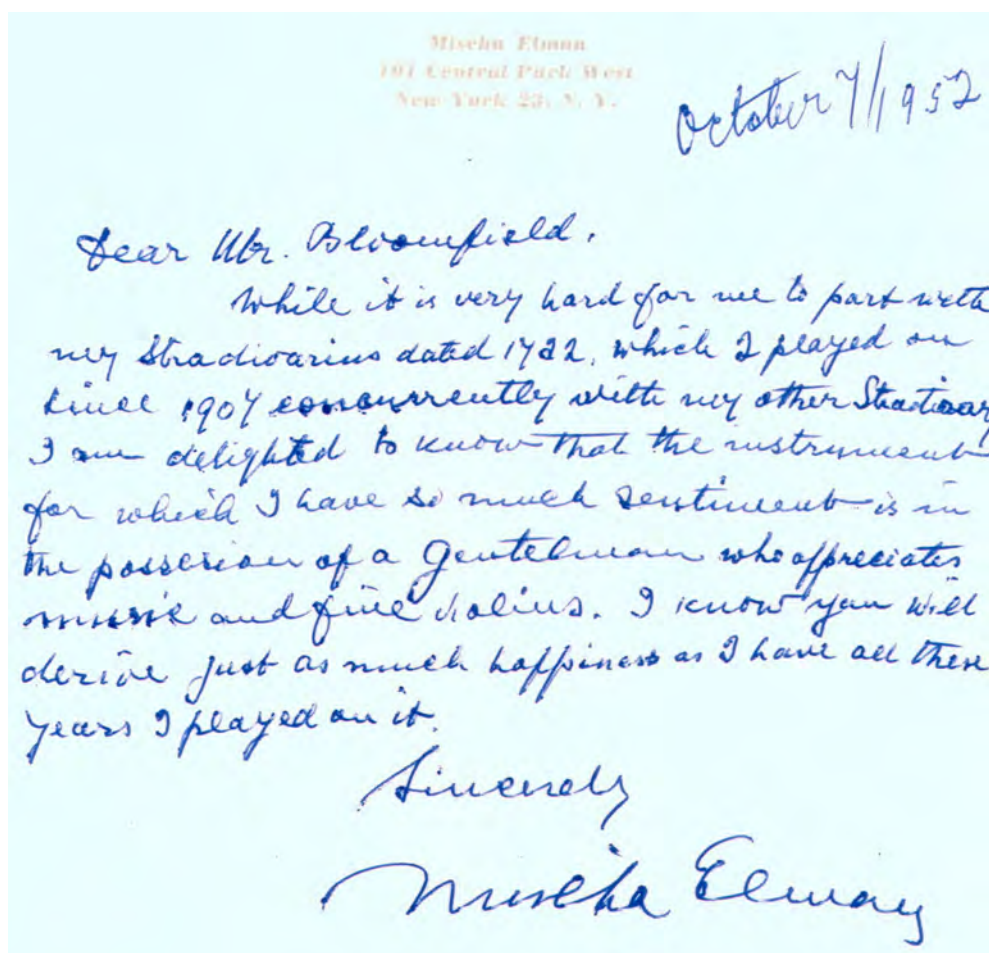 Mischa Elman
101 Central Park West
New York 23, N. Y.
October 7/1952
Dear Mr. Bloomfield.
While it is very hard for me to part with
my Stradivarius dated 1722, which I played on
since 1907 concurrently with my other Stradivary
I am delighted to know that the instrument
for which I have so much sentiment is in
the possession of a Gentelman who appreciates
music and fine violins. I know you will
derive just as much happiness as I have all these
years I played on it.
Sincerely
Mischa Elman